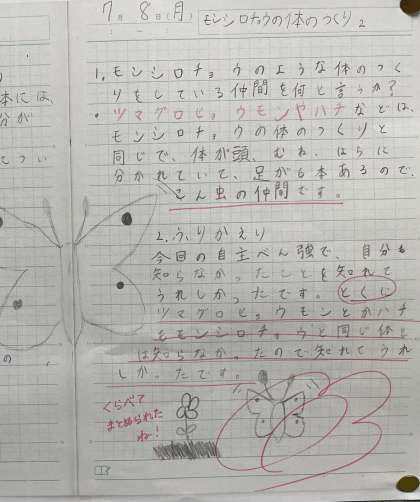 7月8日(月)
モンシロチョウの体のつくり2
1.モンシロチョウのような体のつく
りをしている仲間を何と言うか?
・ツマグロヒョウモンやハチなどは、
モンシロチョウの体のつくりと
同じで、体が頭、むね、はらに
分かれていて、足が6本あるので、
こん虫の仲間です。
2.ふりかえり
今日の自主べん強で、自分も
知らなかったことを知れて
うれしかったです。とくに
ツマグロヒョウモンとかハチ
もモンシロチョウと同じ体と
は知らなかったので知れてうれ
しかったです。
くらべて
まとめられた
ね!
本には、
分が
の